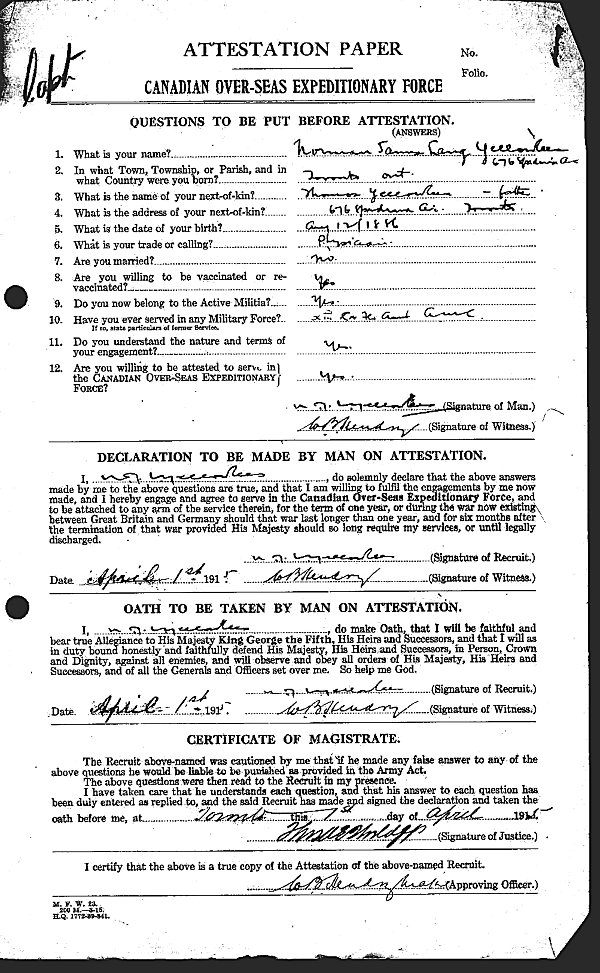 Capt
ATTESTATION PAPER
No.
Folio.
CANADIAN OVER-SEAS EXPEDITIONARY FORCE
QUESTIONS TO BE PUT BEFORE ATTESTATION.
(ANSWERS)
1. What is your name? Norman James Lang Yellowlees
676 Spadina Av
2. In what Town, Township, or Parish, and in
what Country were you born? Toronto Ont.
3. What is the name of your next-of-kin? Thomas Yellowlees - father
4. What is the address of your next-of-kin? 676 Spadina Av. Toronto
5. What is the date of your birth? Aug 12/1886
6. What is your trade or calling? Physician.
7. Are you married? No.
8. Are you willing to be vaccinated or re-
vaccinated? Yes
9. Do you now belong to the Active Militia? Yes.
10. Have you ever served in any Military Force?
If so, state particulars of former Service.
11. Do you understand the nature and terms of
your engagement? Yes.
12. Are you willing to be attested to serve in
the CANADIAN OVER-SEAS EXPEDITIONARY
FORCE? Yes.
N. J. Yellowlees (Signature of Man.)
W B Hendry (Signature of Witness.)
DECLARATION TO BE MADE BY MAN ON ATTESTATION.
I, N J Yellowlees, do solemnly declare that the above answers
made by me to the above questions are true, and that I am willing to fulfil the engagements by me now
made, and I hereby engage and agree to serve in the Canadian Over-Seas Expeditionary Force, and
to be attached to any arm of the service therein, for the term of one year, or during the war now existing
between Great Britain and Germany should that war last longer than one year, and for six months after
the termination of that war provided His Majesty should so long require my services, or until legally
discharged.
N. J. Yellowlees (Signature of Recruit.)
Date April 1st 1915 W B Hendry (Signature of Witness.)
OATH TO BE TAKEN BY MAN ON ATTESTATION.
I, N. J. Yellowlees, do make Oath, that I will be faithful and
bear true Allegiance to His Majesty King George the Fifth, His Heirs and Successors, and that I will as
in duty bound honestly and faithfully defend His Majesty, His Heirs and Successors, in Person, Crown
and Dignity, against all enemies, and will observe and obey all orders of His Majesty, His Heirs and
Successors, and of all the Generals and Officers set over me. So help me God.
N. J. Yellowlees (Signature of Recruit.)
Date. April 1st 1915. W B Hendry (Signature of Witness.)
CERTIFICATE OF MAGISTRATE.
The Recruit above-named was cautioned by me that if he made any false answer to any of the
above questions he would be liable to be punished as provided in the Army Act.
The above questions were then read to the Recruit in my presence.
I have taken care that he understands each question, and that his answer to each question has
been duly entered as replied to, and the said Recruit has made and signed the declaration and taken the
oath before me, at Toronto this 1st day of April 1915.
(Signature of Justice.)
I certify that the above is a true copy of the Attestation of the above-named Recruit.
W B Hendry (Approving Officer.)
M. F. W. 23.
200 M.—3-15.
H.Q. 1772-39-841.